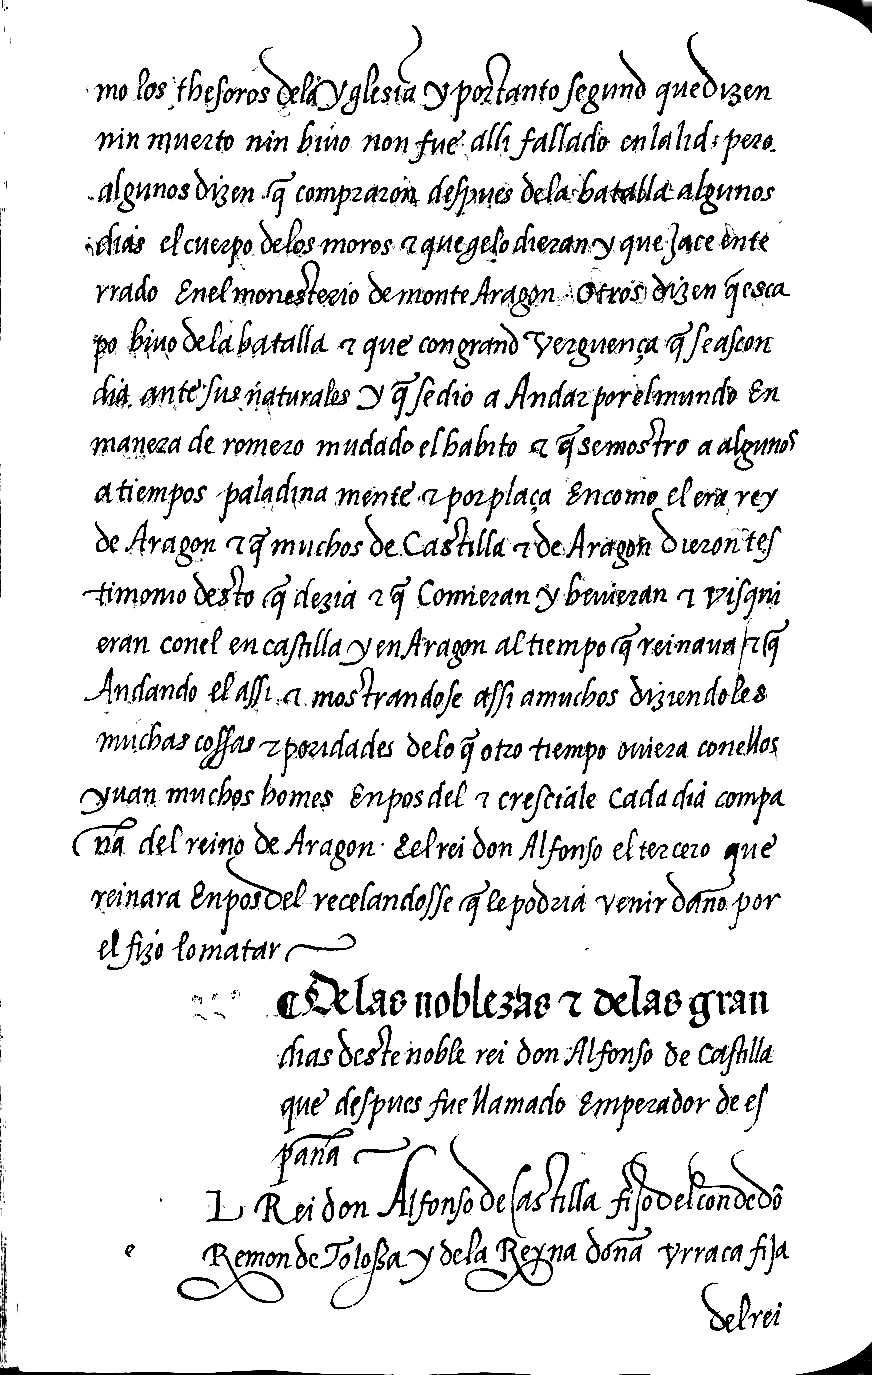 mo los thesoros dela yglesia y portanto segund que dizen
nin muerto nin bivo non fue alli fallado en la lid; pero.
algunos dizen q̃ compraron despues dela batalla algunos
dias el cuerpo delos moros ⁊ que gelo dieran y que jace ente
rrado Enel monesterio de monte Aragon. Otros dizen q̃ esca
po bivo dela batalla ⁊ que con grand verguença q̃ se ascon
dia ante sus naturales y q̃ se dio a Andar por el mundo En
manera de romero mudado el habito ⁊ q̃ se mostro a algunos
a tiempos paladina mente ⁊ por plaça En como el era rey
de Aragon ⁊ q̃ muchos de Castilla ⁊ de Aragon dieron tes
timonio desto q̃ dezia ⁊ q̃ Comieran y bevieran ⁊ visqui
eran conel en castilla y en Aragon al tiempo q̃ reinava / ⁊ q̃
Andando el assi ⁊ mostrandose assi a muchos diziendoles
muchas cossas ⁊ poridades delo q̃ otro tiempo oviera conellos
yuan muchos homes En pos del ⁊ cresciale cada dia compa
ña del reino de Aragon. E el rei don Alfonso el tercero que
reinara En pos del recelandosse q̃ le podria venir daño por
el fizo lo matar
¶ De las noblezas ⁊ de las gran
dias deste noble rei don Alfonso de Castilla
que despues fue llamado Emperador de es
paña
L Rei don Alfonso de Castilla fijo del conde dõ
e
Remon de Tolossa y dela Reyna doña vrraca fija
del rei